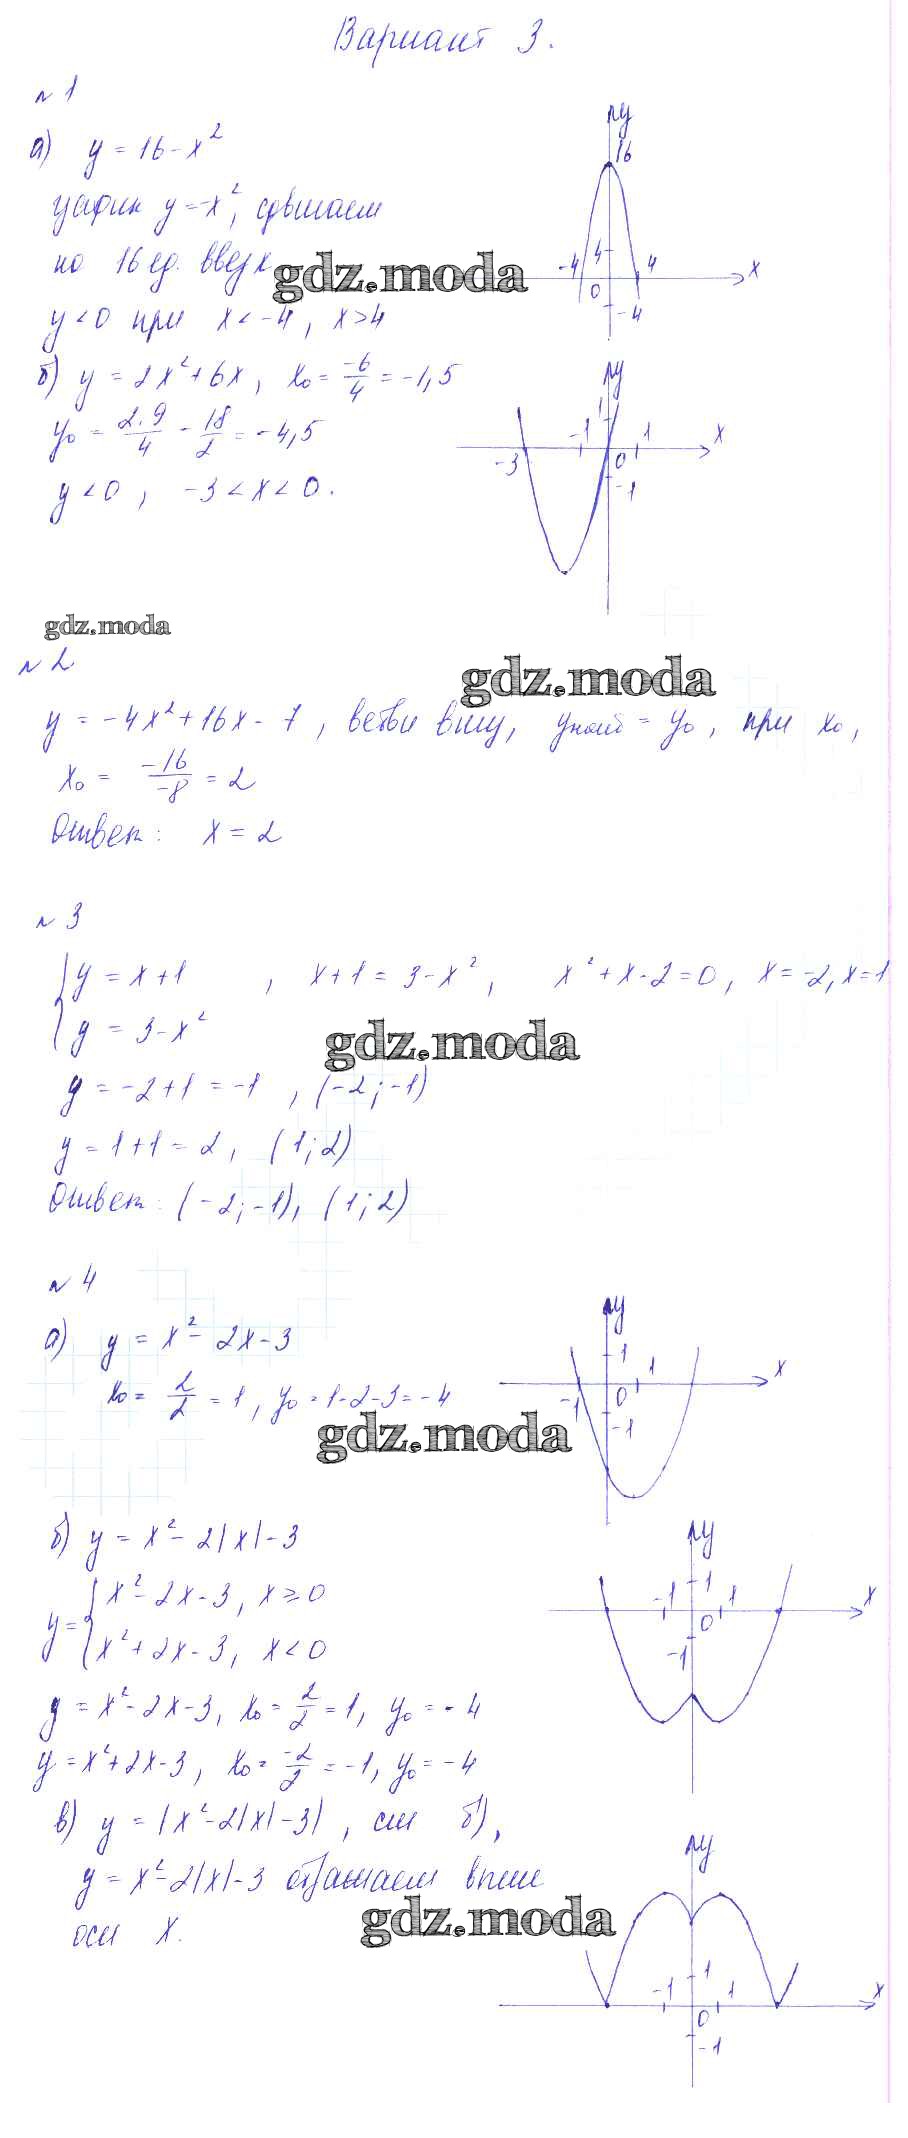 Вариант 3.
№ 1
а) y = 16 - x²
график y = -x², сдвигаем
на 16 ед. вверх
gdz.moda
y < 0 при x < -4, x > 4
y
16
4
-4
4
x
0
-4
б) y = 2x² + 6x, x₀ = -6/4 = -1,5
y₀ = 2·9/4 - 18/2 = -4,5
y < 0, -3 < x < 0.
y
1
-1
1
x
-3
0
-1
gdz.moda
№ 2
gdz.moda
y = -4x² + 16x - 7, ветви вниз, yнаиб = y₀, при x₀,
x₀ = -16/-8 = 2
Ответ: x = 2
№ 3
{ y = x + 1, x + 1 = 3 - x², x² + x - 2 = 0, x = -2, x = 1
y = 3 - x²
gdz.moda
y = -2 + 1 = -1, (-2; -1)
y = 1 + 1 = 2, (1; 2)
Ответ: (-2; -1), (1; 2)
№ 4
а) y = x² - 2x - 3
x₀ = 2/2 = 1, y₀ = 1 - 2 - 3 = -4
gdz.moda
y
1
1
x
-1
0
-1
б) y = x² - 2|x| - 3
y = { x² - 2x - 3, x ≥ 0
x² + 2x - 3, x < 0
y = x² - 2x - 3, x₀ = 2/2 = 1, y₀ = -4
y = x² + 2x - 3, x₀ = -2/2 = -1, y₀ = -4
y
-1
1
1
x
0
-1
в) y = |x² - 2|x| - 3|, см б),
y = x² - 2|x| - 3 отражаем выше
оси x.
gdz.moda
y
1
-1
1
x
0
-1